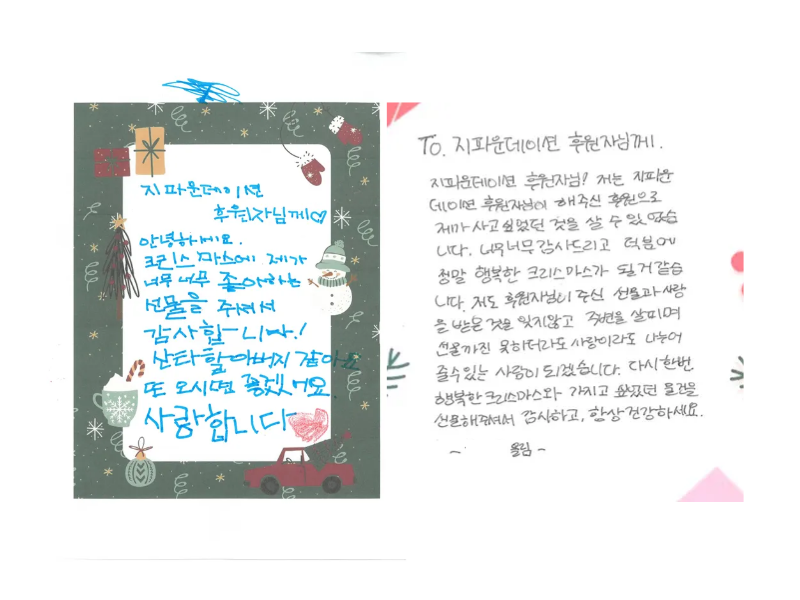 지파운데이션
후원자님께♡
안녕하세요.
크리스마스에 제가
너무너무 좋아하는
선물을 주셔서
감사합니다!
산타할아버지 같아요
또 오시면 좋겠어요.
사랑합니다
To. 지파운데이션 후원자님께.
지파운데이션 후원자님! 저는 지파운
데이션 후원자님이 해주신 후원으로
제가 사고 싶었던 것을 살 수 있었습
니다. 너무너무 감사드리고 덕분에
정말 행복한 크리스마스가 될거 같습
니다. 저도 후원자님이 주신 선물과 사랑
을 받은 것을 잊지않고 주변을 살피며
선물까진 못하더라도 사랑이라도 나누어
줄수있는 사람이 되겠습니다. 다시한번
행복한 크리스마스와 가지고 싶었던 물건을
선물해주셔서 감사하고, 항상 건강하세요.
~ 올림 -